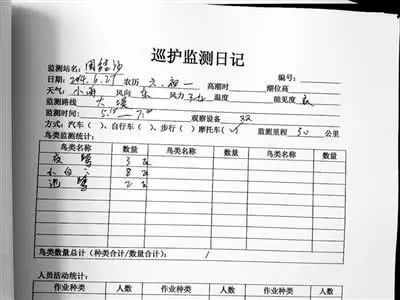 巡护监测日记
监测站名: 编号:
日期: 2014.6.27 农历 六.初一 高潮时 潮位高
天气: 小雨 风向 东 风力 3级 温度 能见度 良
监测路线 大堤
监测时间: 5:15— 观察设备 32
方式: 汽车( )、自行车( )、步行( )摩托车(√ 监测里程 50 公里
鸟类监测统计:
鸟类名称 数量 鸟类名称 数量 鸟类名称 数量
夜鹭 3只
小白 8只
池鹭 2只
鸟类数量总计(种类合计/数量合计): /
人员活动统计:
作业种类 人数 作业种类 人数 作业种类 人数